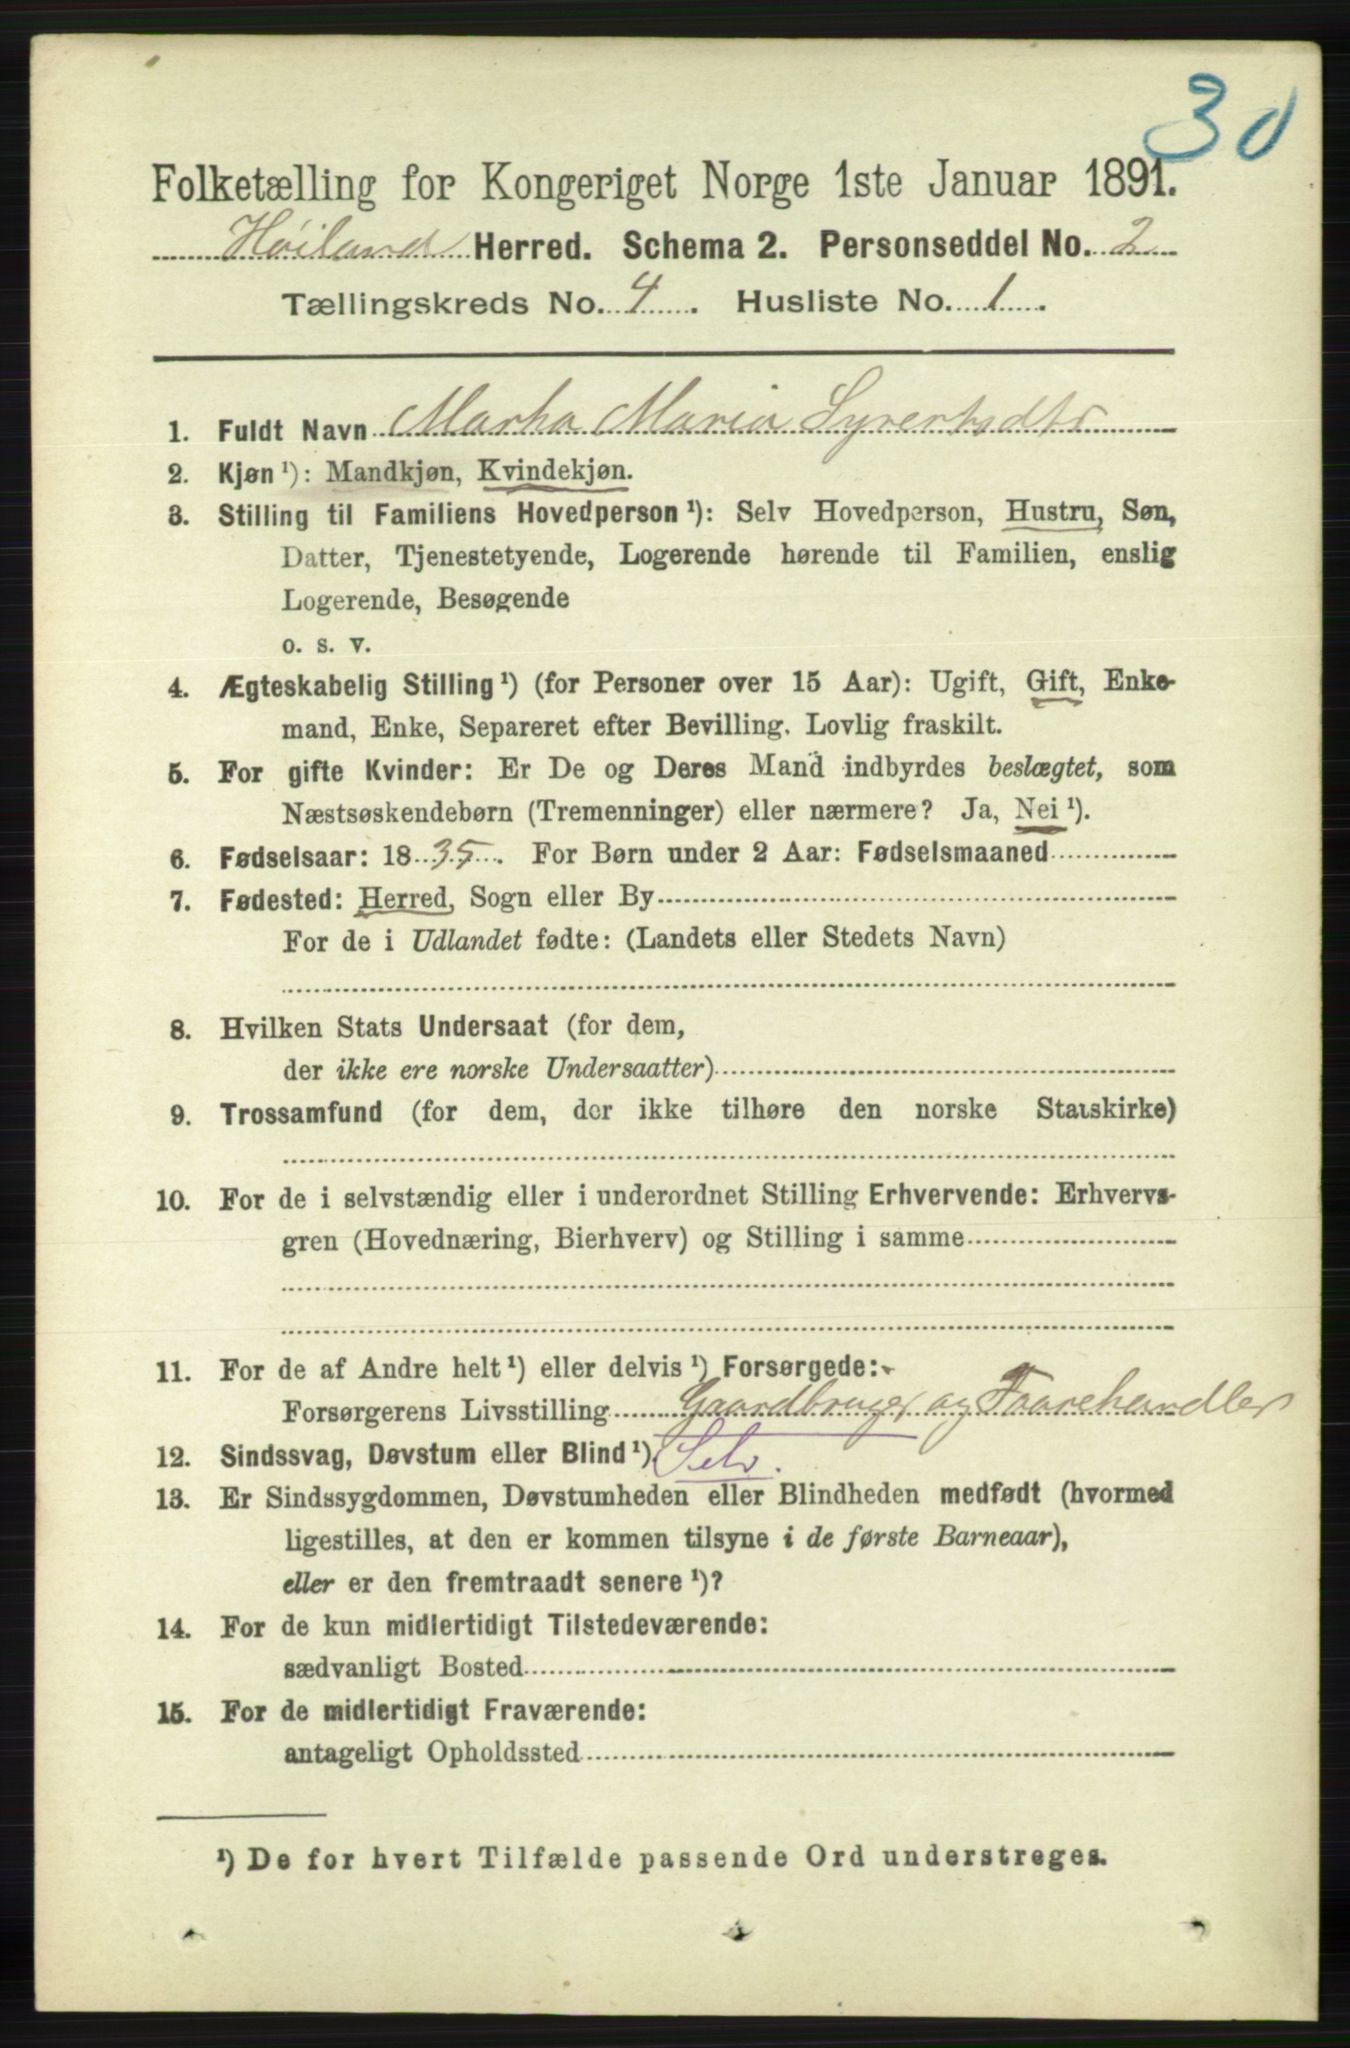 30
Folketælling for Kongeriget Norge 1ste Januar 1891.
Høiland Herred. Schema 2. Personseddel No. 2
Tællingskreds No. 4. Husliste No. 1.
1. Fuldt Navn Martha Maria Syvertsdtr
2. Kjøn ¹): Mandkjøn, Kvindekjøn.
3. Stilling til Familiens Hovedperson ¹): Selv Hovedperson, Hustru, Søn,
Datter, Tjenestetyende, Logerende hørende til Familien, enslig
Logerende, Besøgende
o. s. v.
4. Ægteskabelig Stilling ¹) (for Personer over 15 Aar): Ugift, Gift, Enke-
mand, Enke, Separeret efter Bevilling. Lovlig fraskilt.
5. For gifte Kvinder: Er De og Deres Mand indbyrdes beslægtet, som
Næstsøskendebørn (Tremenninger) eller nærmere? Ja, Nei ¹).
6. Fødselsaar: 1835. For Børn under 2 Aar: Fødselsmaaned
7. Fødested: Herred, Sogn eller By
For de i Udlandet fødte: (Landets eller Stedets Navn)
8. Hvilken Stats Undersaat (for dem,
der ikke ere norske Undersaatter)
9. Trossamfund (for dem, der ikke tilhøre den norske Statskirke)
10. For de i selvstændig eller i underordnet Stilling Erhvervende: Erhvervs-
gren (Hovednæring, Bierhverv) og Stilling i samme
11. For de af Andre helt ¹) eller delvis ¹) Forsørgede:
Forsørgerens Livsstilling Gaardbruger og Faarehandler
12. Sindssvag, Døvstum eller Blind ¹). Selv.
13. Er Sindssygdommen, Døvstumheden eller Blindheden medfødt (hvormed
ligestilles, at den er kommen tilsyne i de første Barneaar),
eller er den fremtraadt senere ¹)?
14. For de kun midlertidigt Tilstedeværende:
sædvanligt Bosted
15. For de midlertidigt Fraværende:
antageligt Opholdssted
¹) De for hvert Tilfælde passende Ord understreges.